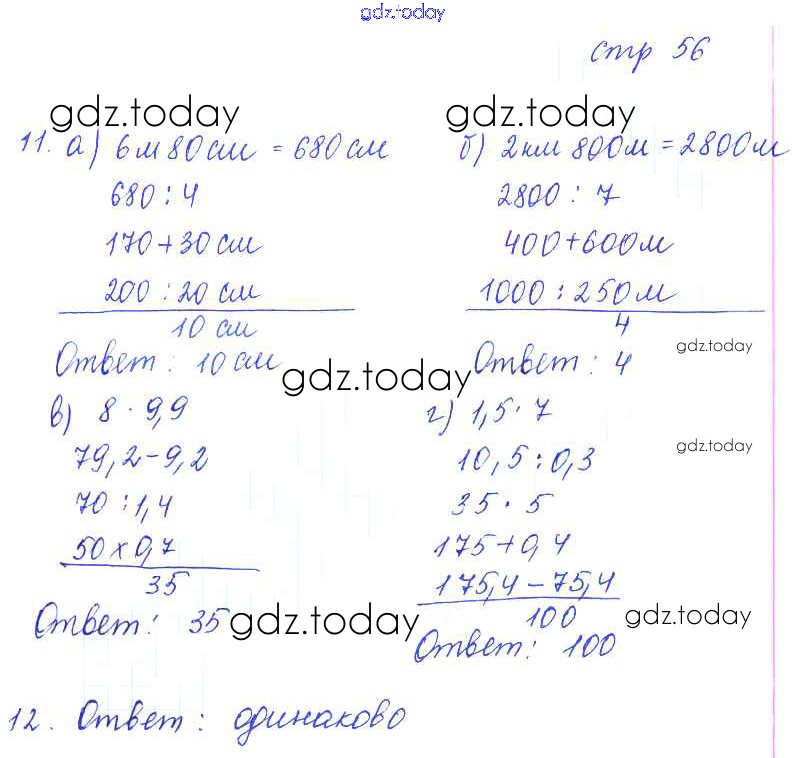 gdz.today
стр 56
gdz.today gdz.today
11. а) 6м 80см = 680см б) 2км 800м = 2800м
680 : 4 2800 : 7
170 + 30 см 400 + 600м
200 : 20 см 1000 : 250м
10 см 4
Ответ: 10 см Ответ: 4 gdz.today
gdz.today
в) 8 · 9,9 г) 1,5 · 7
79,2 - 9,2 10,5 : 0,3 gdz.today
70 : 1,4 35 · 5
50 x 0,7 175 + 0,4
35 175,4 - 75,4
100
Ответ: 35 gdz.today gdz.today
Ответ: 100
12. Ответ: одинаково